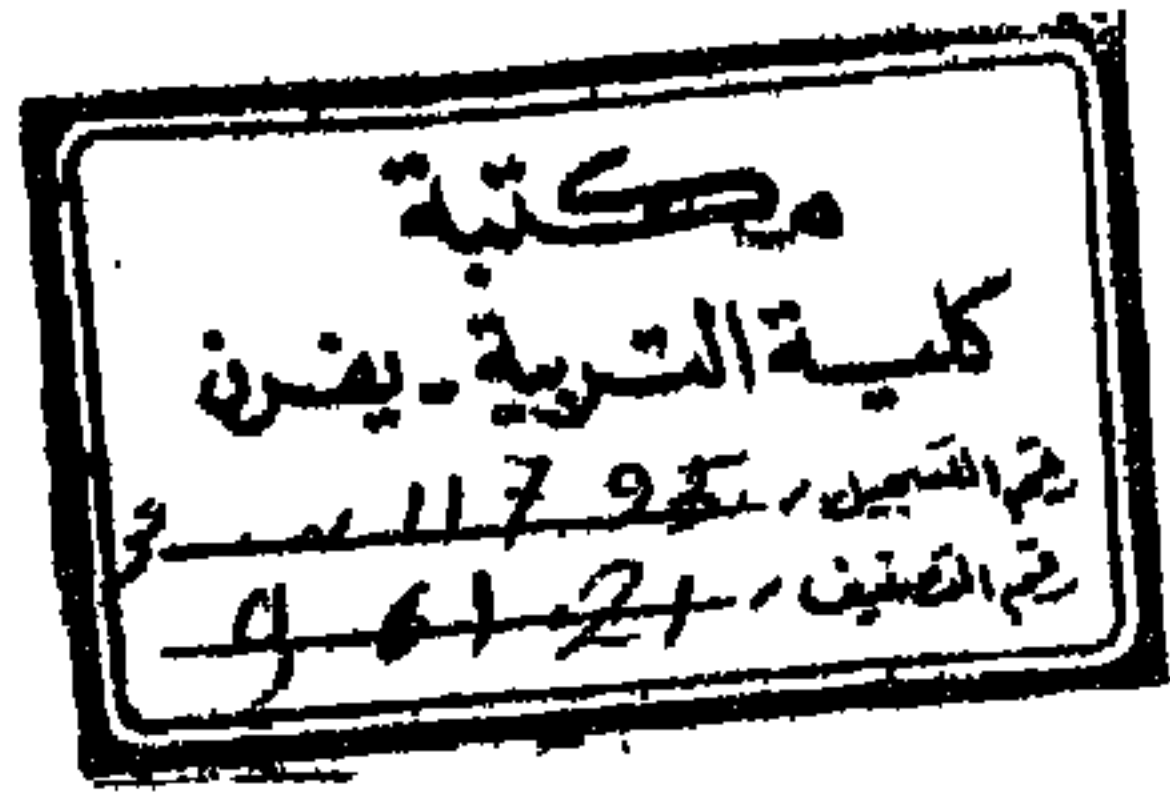 مكتبة
كلية التربية - يفرن
رقم التسجيل / 11795
رقم التصنيف / 961.21